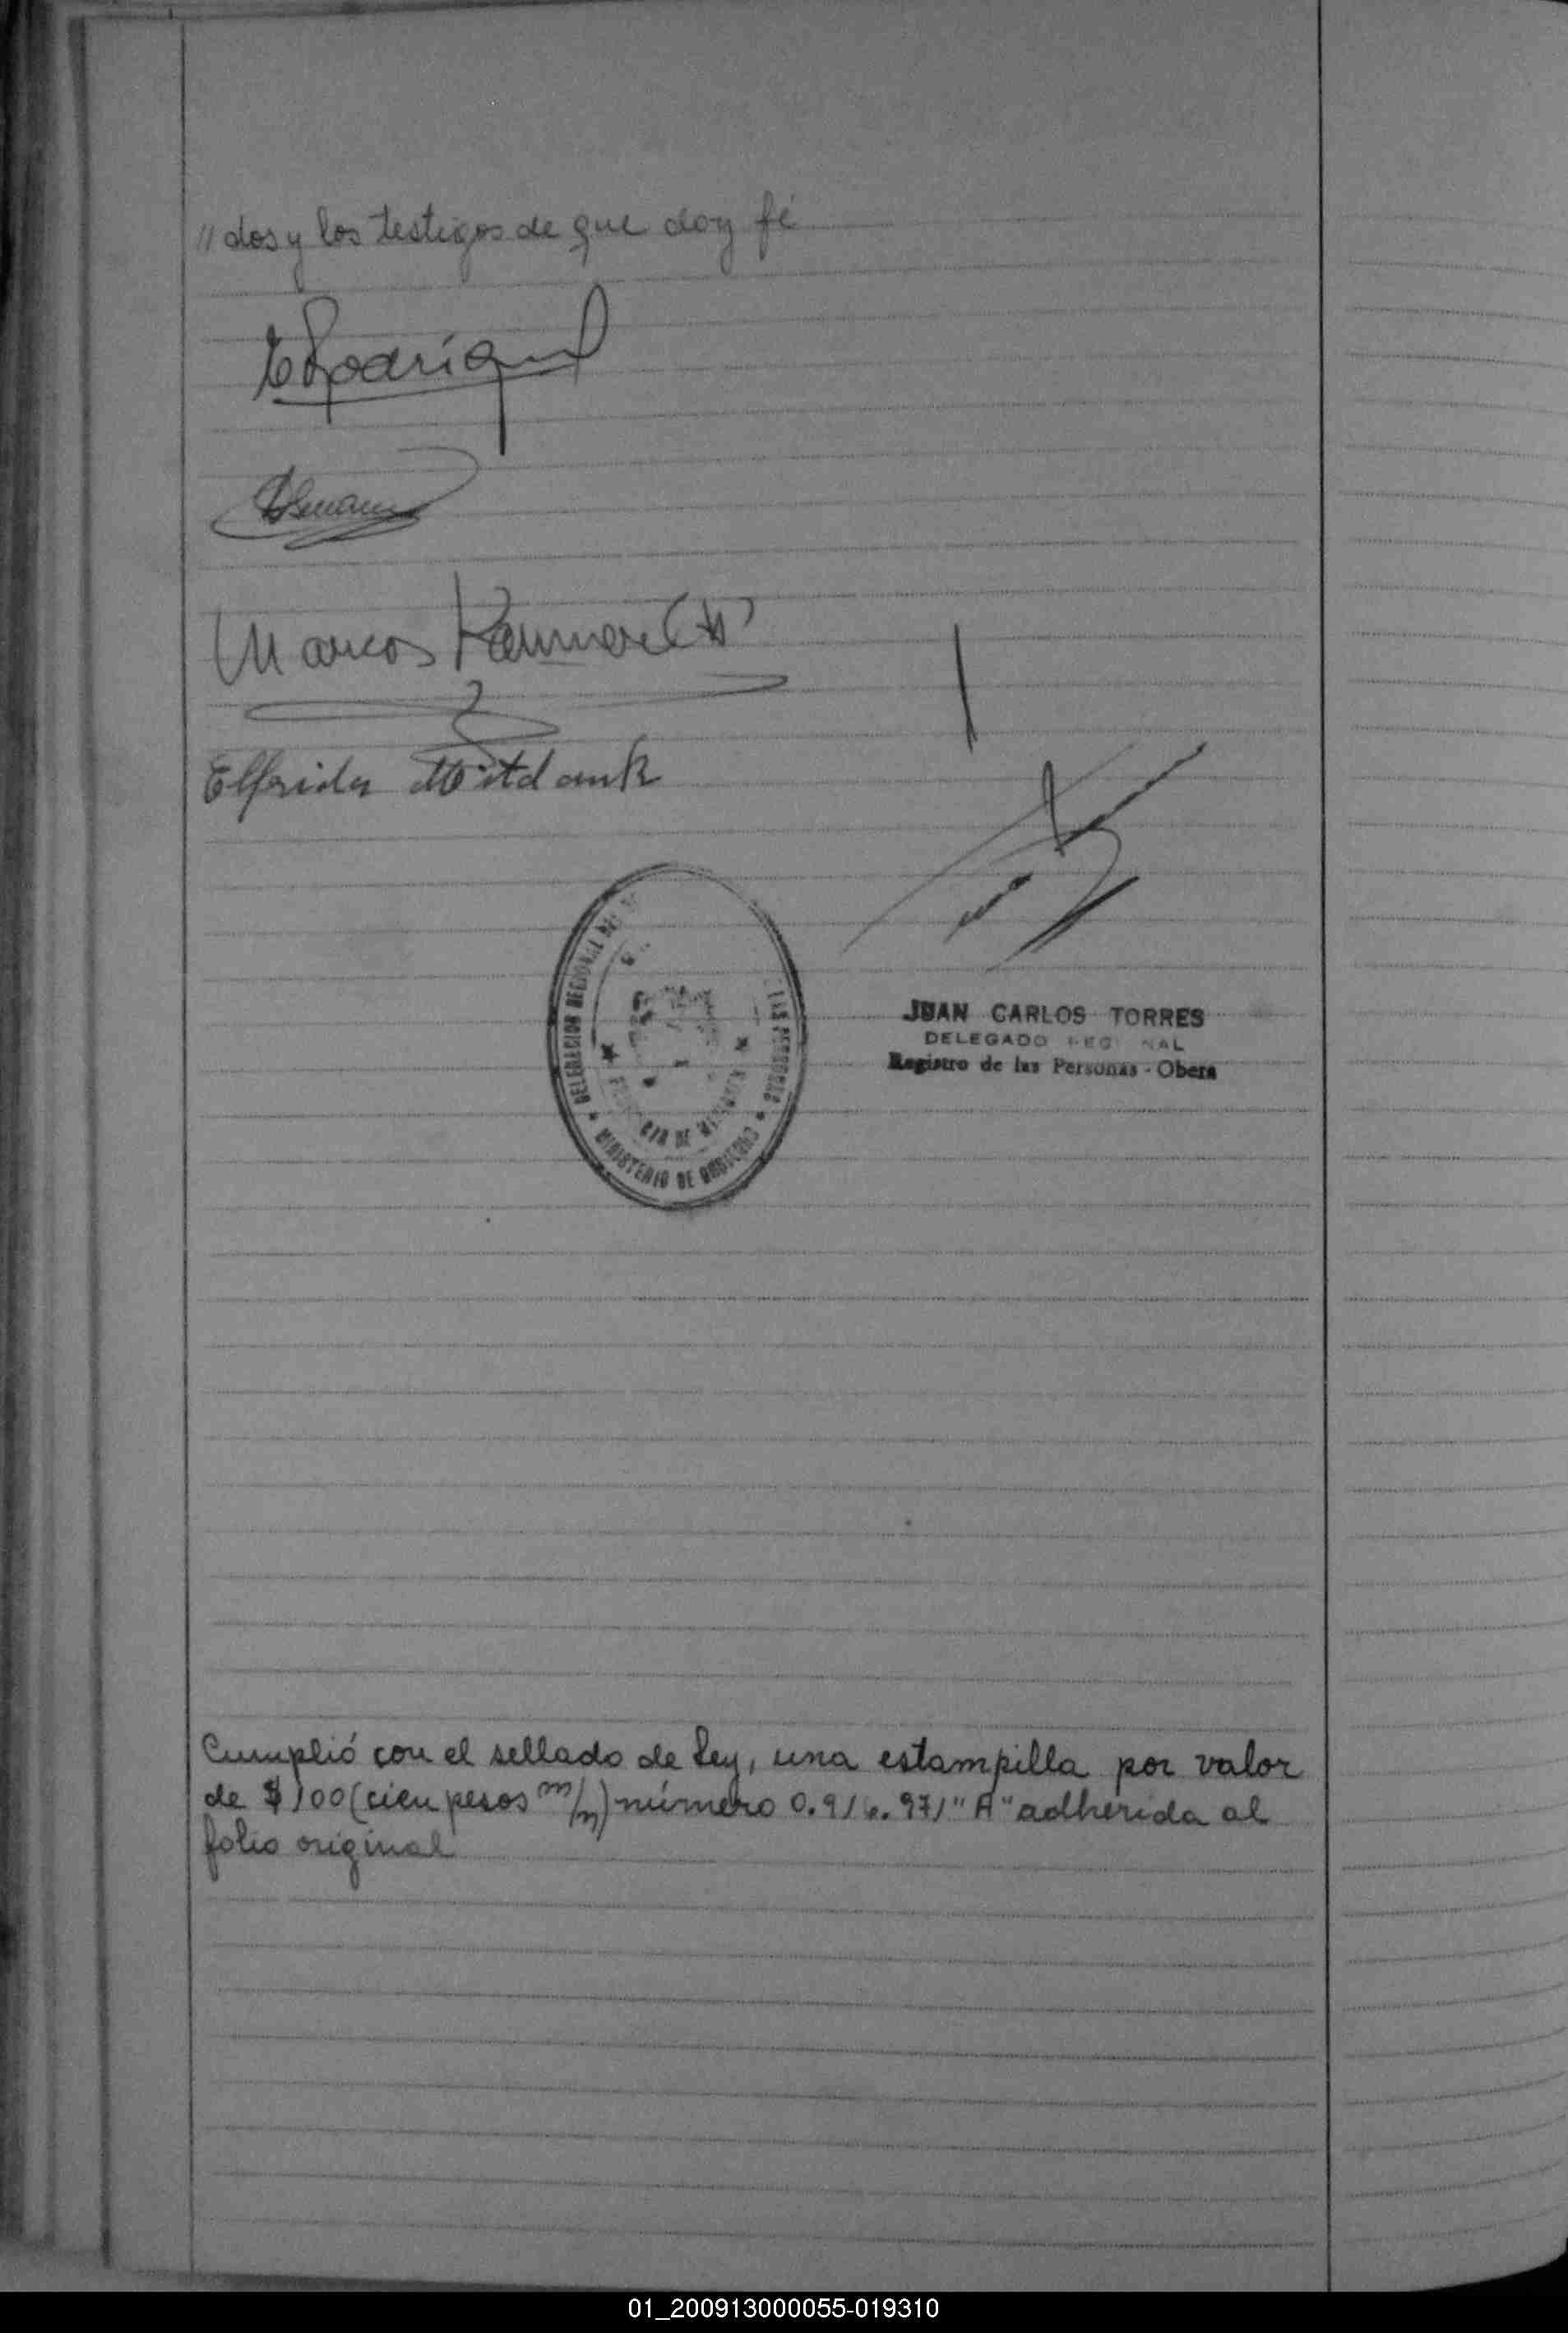 // dos y los testigos de que doy fé
Marcos
Elfrida Mitdank
DELEGACION REGIONAL DEL
LAS PERSONAS
MINISTERIO DE GOBIERNO
PROVINCIA DE MISIONES
JUAN CARLOS TORRES
DELEGADO REGIONAL
Registro de las Personas - Obera
Cumplió con el sellado de Ley, una estampilla por valor
de $ 100 (cien pesos m/n) número "A" adherida al
folio original
01_200913000055-019310